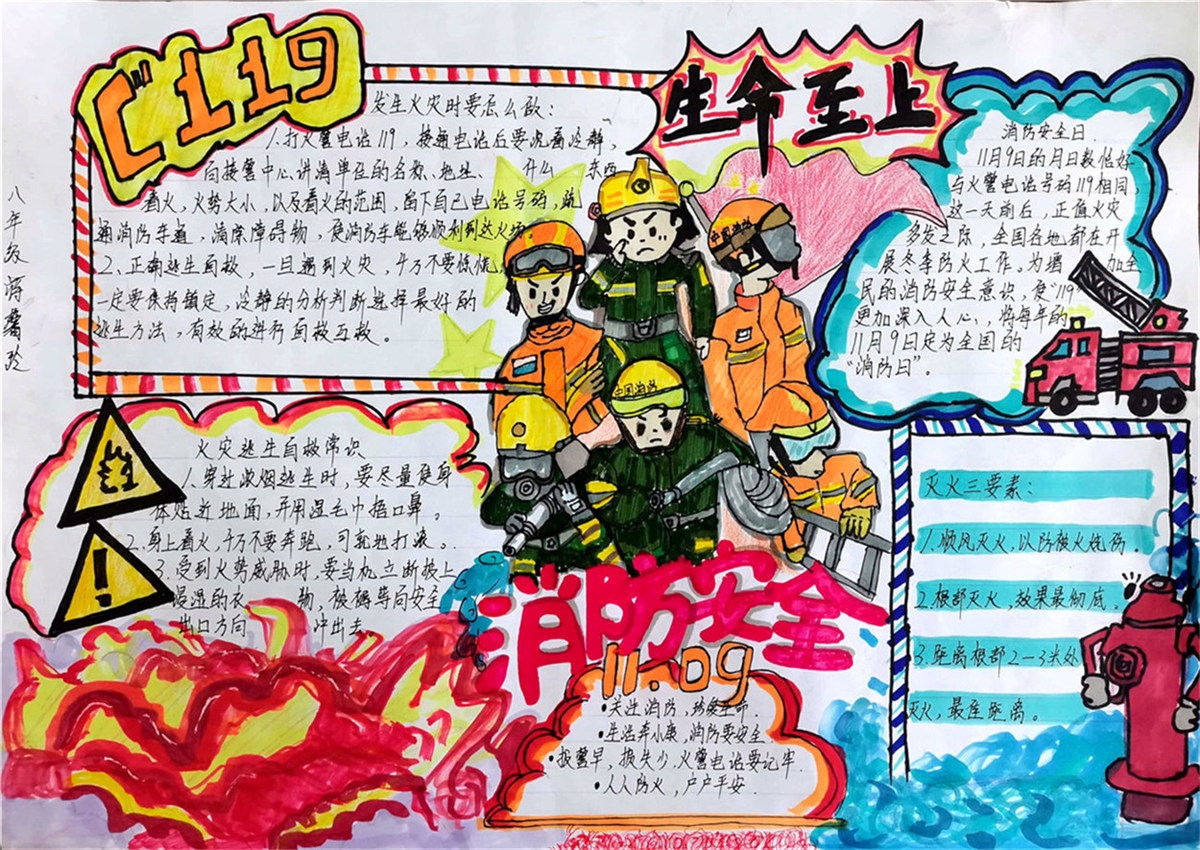 119
发生火灾时要怎么做：
1.打火警电话119，接通电话后要沉着冷静，
向接警中心讲清单位的名称、地址、 什么 东西
着火，火势大小，以及着火的范围，留下自己电话号码，疏
通消防车道，清除障碍物，使消防车能够顺利到达火场。
2、正确逃生自救，一旦遇到火灾，千万不要惊慌，
一定要保持镇定，冷静的分析判断选择最好的
逃生方法，有效的进行自救互救。
生命至上
消防安全日
11月9日的月日数恰好
与火警电话号码119相同，
这一天前后，正值火灾
多发之际，全国各地都在开
展冬季防火工作。为增 加全
民的消防安全意识，使"119
更加深入人心，将每年的
11月9日定为全国的
"消防日"。
八年级
中国消防
中国消防
火灾逃生自救常识
1.穿过浓烟逃生时，要尽量使身
体贴近地面，并用湿毛巾捂口鼻。
2.身上着火，千万不要奔跑，可就地打滚。
3.受到火势威胁时，要当机立断披上
浸湿的衣 物，被褥等向安全
出口方向 冲出去。
消防安全
11.09
•关注消防，珍爱生命.
•生活奔小康，消防要安全.
•报警早，损失少，火警电话要记牢.
•人人防火，户户平安.
灭火三要素：
1.顺风灭火，以防被火烧伤。
2.根部灭火，效果最彻底。
3.距离根部2-3米处
灭火，最佳距离。